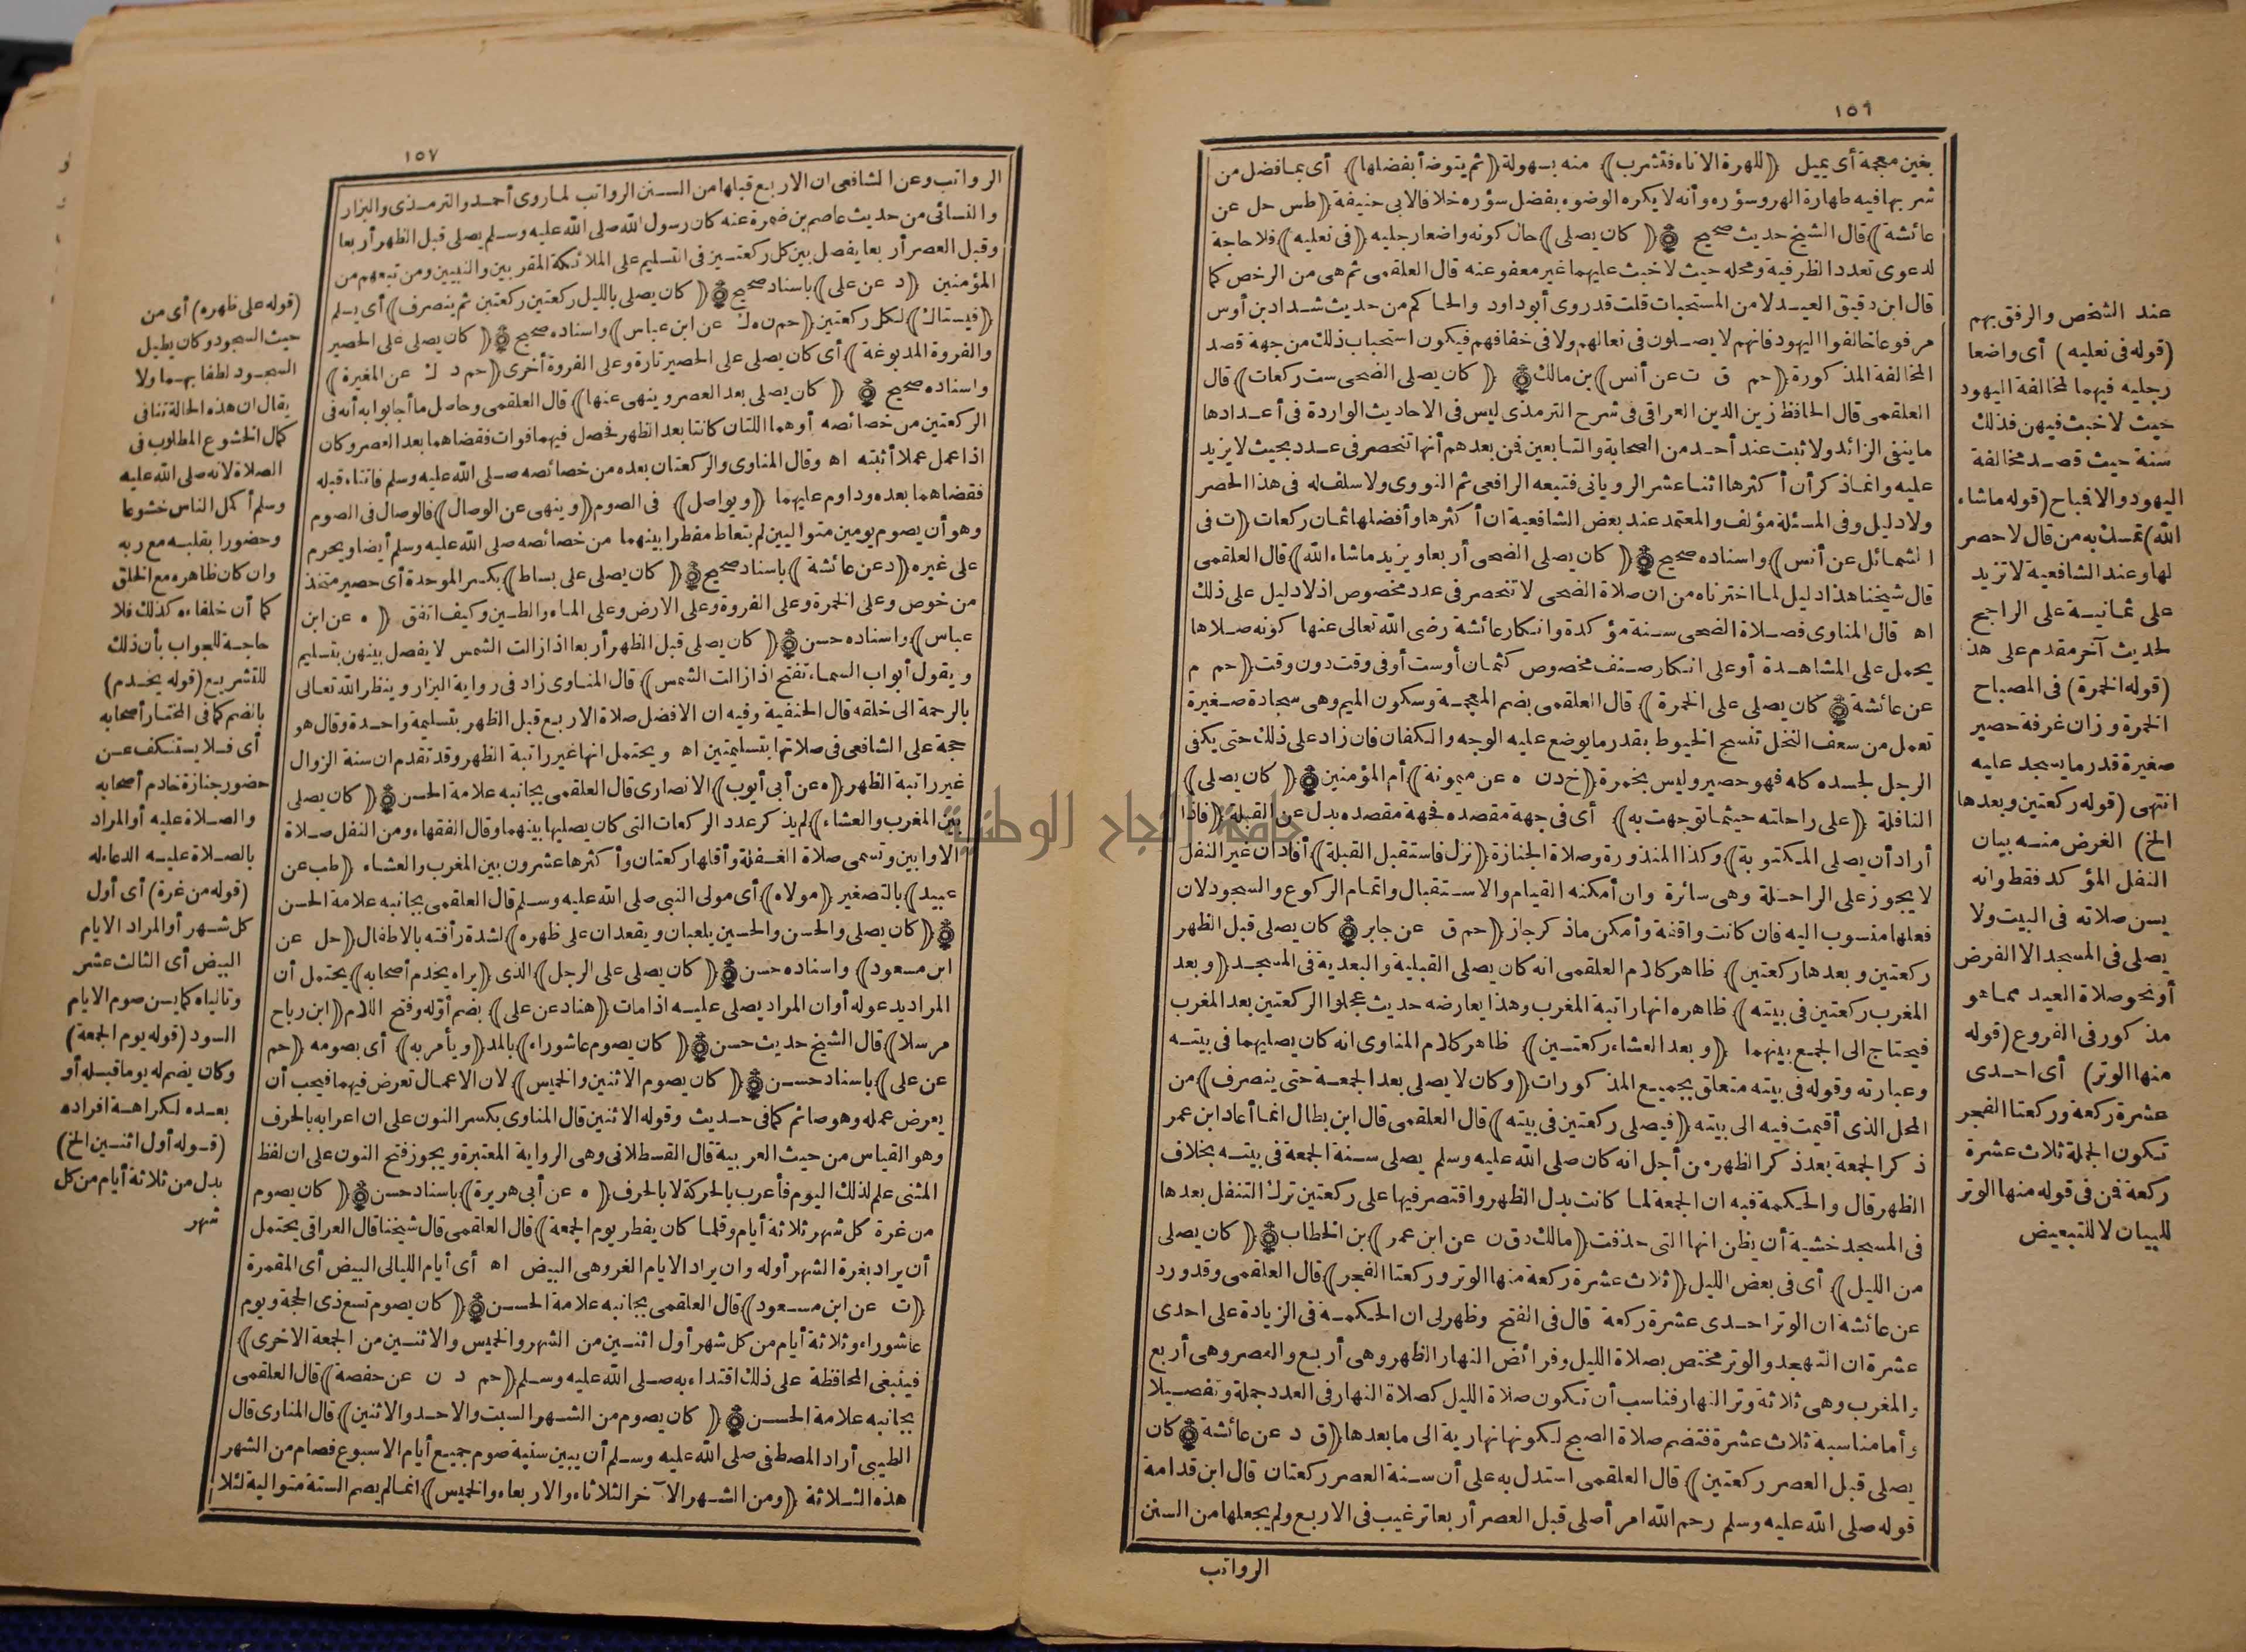 ١٥٦
بغين معجمة أى يميل (للهرة الاناء فتشرب) منه بسهولة (ثم يتوضأ بفضلها) أى بما فضل من
شربها فيه طهارة الهر وسؤره وأنه لا يكره الوضوء بفضل سؤره خلافا لابى حنيفة (طس حل عن
عائشة) قال الشيخ حديث صحيح (كان يصلى) حال كونه واضعا رجليه (فى نعليه) فلا حاجة
لدعوى تعدد الظرفية ومحله حيث لا خبث عليهما غير معفو عنه قال العلقمى ثم هى من الرخص كما
قال ابن دقيق العيد لا من المستحبات قلت قد روى أبو داود والحاكم من حديث شداد بن أوس
مرفوعا خالفوا اليهود فانهم لا يصلون فى نعالهم ولا فى خفافهم فيكون استحباب ذلك من جهة قصد
المخالفة المذكورة (حم ق ت عن أنس) بن مالك (كان يصلى الضحى ست ركعات) قال
العلقمى قال الحافظ زين الدين العراقى فى شرح الترمذى ليس فى الاحاديث الواردة فى أعدادها
ما ينفى الزائد ولا ثبت عند أحد من الصحابة والتابعين فمن بعدهم أنها تنحصر فى عدد بحيث لا يزيد
عليه وانما ذكر أن أكثرها اثنا عشر الرويانى فتبعه الرافعى ثم النووى ولا سلف له فى هذا الحصر
ولا دليل وفى المسئلة مؤلف والمعتمد عند بعض الشافعية ان أكثرها وأفضلها ثمان ركعات (ت فى
الشمائل عن أنس) واسناده صحيح (كان يصلى الضحى أربعا ويزيد ما شاء الله) قال العلقمى
قال شيخنا هذا دليل لما اخترناه من ان صلاة الضحى لا تنحصر فى عدد مخصوص اذ لا دليل على ذلك
اه قال المناوى فصلاة الضحى سنة مؤكدة وانكار عائشة رضى الله تعالى عنها كونه صلاها
يحمل على المشاهدة أو على انكار صنف مخصوص كثمان أو ست أو فى وقت دون وقت (حم م
عن عائشة كان يصلى على الخمرة) قال العلقمى بضم المعجمة وسكون الميم وهى سجادة صغيرة
تعمل من سعف النخل تنسج الخيوط بقدر ما يوضع عليه الوجه والكفان فان زاد على ذلك حتى يكفى
الرجل لجسده كله فهو حصير وليس بخمرة (خ د ن ه عن ميمونة) أم المؤمنين (كان يصلى)
النافلة (على راحلته حيثما توجهت به) أى فى جهة مقصده فجهة مقصده بدل عن القبلة (فاذا
أراد أن يصلى المكتوبة) وكذا المنذورة وصلاة الجنازة (نزل فاستقبل القبلة) أفاد أن غير النفل
لا يجوز على الراحلة وهى سائرة وان أمكنه القيام والاستقبال واتمام الركوع والسجود لان
فعلها منسوب اليه فان كانت واقفة وأمكن ما ذكر جاز (حم ق عن جابر كان يصلى قبل الظهر
ركعتين وبعدها ركعتين) ظاهر كلام العلقمى انه كان يصلى القبلية والبعدية فى المسجد (وبعد
المغرب ركعتين فى بيته) ظاهره انها راتبة المغرب وهذا يعارضه حديث عجلوا الركعتين بعد المغرب
فيحتاج الى الجمع بينهما (وبعد العشاء ركعتين) ظاهر كلام المناوى انه كان يصليهما فى بيته
وعبارته وقوله فى بيته متعلق بجميع المذكورات (وكان لا يصلى بعد الجمعة حتى ينصرف) من
المحل الذى أقيمت فيه الى بيته (فيصلى ركعتين فى بيته) قال العلقمى قال ابن بطال انما أعاد ابن عمر
ذكر الجمعة بعد ذكر الظهر من أجل انه كان صلى الله عليه وسلم يصلى سنة الجمعة فى بيته بخلاف
الظهر قال والحكمة فيه ان الجمعة لما كانت بدل الظهر واقتصر فيها على ركعتين ترك التنفل بعدها
فى المسجد خشية أن يظن انها التى حذفت (مالك ق د ن عن ابن عمر) بن الخطاب (كان يصلى
من الليل) أى فى بعض الليل (ثلاث عشرة ركعة منها الوتر وركعتا الفجر) قال العلقمى وقد ورد
عن عائشة ان الوتر احدى عشرة ركعة قال فى الفتح وظهر لى ان الحكمة فى الزيادة على احدى
عشرة ان التهجد والوتر مختص بصلاة الليل وفرائض النهار الظهر وهى أربع والعصر وهى أربع
والمغرب وهى ثلاثة وتر النهار فناسب أن تكون صلاة الليل كصلاة النهار فى العدد جملة وتفصيلا
وأما مناسبة ثلاث عشرة فتضم صلاة الصبح لكونها نهارية الى ما بعدها (ق د عن عائشة كان
يصلى قبل العصر ركعتين) قال العلقمى استدل به على أن سنة العصر ركعتان قال ابن قدامة
قوله صلى الله عليه وسلم رحم الله امرأ صلى قبل العصر أربعا ترغيب فى الاربع ولم يجعلها من السنن
الرواتب
عند الشخص والرفق بهم
(قوله فى نعليه) أى واضعا
رجليه فيهما لمخالفة اليهود
حيث لا خبث فيهن فذلك
سنة حيث قصد مخالفة
اليهود والا فمباح (قوله ما شاء
الله) تمسك به من قال لا حصر
لها وعند الشافعية لا تزيد
على ثمانية على الراجح
لحديث آخر مقدم على هذا
(قوله الخمرة) فى المصباح
الخمرة وزان غرفة حصير
صغيرة قدر ما يسجد عليه
انتهى (قوله ركعتين وبعدها
الخ) الغرض منه بيان
النفل المؤكد فقط وانه
يسن صلاته فى البيت ولا
يصلى فى المسجد الا الفرض
أو نحو صلاة العيد مما هو
مذكور فى الفروع (قوله
منها الوتر) أى احدى
عشرة ركعة وركعتا الفجر
تكون الجملة ثلاث عشرة
ركعة فمن فى قوله منها الوتر
للبيان لا للتبعيض
١٥٧
الرواتب وعن الشافعى ان الاربع قبلها من السنن الرواتب لما روى أحمد والترمذى والبزار
والنسائى من حديث عاصم بن ضمرة عنه كان رسول الله صلى الله عليه وسلم يصلى قبل الظهر أربعا
وقبل العصر أربعا يفصل بين كل ركعتين فى التسليم على الملائكة المقربين والنبيين ومن تبعهم من
المؤمنين (د عن على) باسناد صحيح (كان يصلى بالليل ركعتين ركعتين ثم ينصرف) أى يسلم
(فيستاك) لكل ركعتين (حم ن ه ك عن ابن عباس) واسناده صحيح (كان يصلى على الحصير
والفروة المدبوغة) أى كان يصلى على الحصير تارة وعلى الفروة أخرى (حم د ك عن المغيرة)
واسناده صحيح (كان يصلى بعد العصر وينهى عنها) قال العلقمى وحاصل ما أجابوا به أنه فى
الركعتين من خصائصه أو هما اللتان كانتا بعد الظهر فحصل فيهما فوات فقضاهما بعد العصر وكان
اذا عمل عملا أثبته اه وقال المناوى والركعتان بعده من خصائصه صلى الله عليه وسلم فاتتاه قبله
فقضاهما بعده وداوم عليهما (ويواصل) فى الصوم (وينهى عن الوصال) فالوصال فى الصوم
وهو أن يصوم يومين متواليين لم يتعاط مفطرا بينهما من خصائصه صلى الله عليه وسلم أيضا ويحرم
على غيره (د عن عائشة) باسناد صحيح (كان يصلى على بساط) بكسر الموحدة أى حصير متخذ
من خوص وعلى الخمرة وعلى الفروة وعلى الارض وعلى الماء والطين وكيف اتفق (ه عن ابن
عباس) واسناده حسن (كان يصلى قبل الظهر أربعا اذا زالت الشمس لا يفصل بينهن بتسليم
ويقول أبواب السماء تفتح اذا زالت الشمس) قال المناوى زاد فى رواية البزار وينظر الله تعالى
بالرحمة الى خلقه قال الحنفية وفيه ان الافضل صلاة الاربع قبل الظهر بتسليمة واحدة وقال هو
حجة على الشافعى فى صلاتها بتسليمتين اه ويحتمل انها غير راتبة الظهر وقد تقدم ان سنة الزوال
غير راتبة الظهر (ه عن أبى أيوب) الانصارى قال العلقمى بجانبه علامة الحسن (كان يصلى
بين المغرب والعشاء) لم يذكر عدد الركعات التى كان يصليها بينهما وقال الفقهاء ومن النفل صلاة
الاوابين وتسمى صلاة الغفلة وأقلها ركعتان وأكثرها عشرون بين المغرب والعشاء (طب عن
عبيد) بالتصغير (مولاه) أى مولى النبى صلى الله عليه وسلم قال العلقمى بجانبه علامة الحسن
(كان يصلى والحسن والحسين يلعبان ويقعدان على ظهره) لشدة رأفته بالاطفال (حل عن
ابن مسعود) واسناده حسن (كان يصلى على الرجل) الذى (يراه يخدم أصحابه) يحتمل أن
المراد يدعو له أو ان المراد يصلى عليه اذا مات (هناد عن على) بضم أوّله وفتح اللام (ابن رباح
مرسلا) قال الشيخ حديث حسن (كان يصوم عاشوراء) بالمد (ويأمر به) أى بصومه (حم
عن على) باسناد حسن (كان يصوم الاثنين والخميس) لان الاعمال تعرض فيهما فيحب أن
يعرض عمله وهو صائم كما فى حديث وقوله الاثنين قال المناوى بكسر النون على ان اعرابه بالحرف
وهو القياس من حيث العربية قال القسطلانى وهى الرواية المعتبرة ويجوز فتح النون على ان لفظ
المثنى علم لذلك اليوم فأعرب بالحركة لا بالحرف (ه عن أبى هريرة) باسناد حسن (كان يصوم
من غرة كل شهر ثلاثة أيام وقلما كان يفطر يوم الجمعة) قال العلقمى قال شيخنا قال العراقى يحتمل
أن يراد بغرة الشهر أوله وان يراد الايام الغر وهى البيض اه أى أيام الليالى البيض أى المقمرة
(ت عن ابن مسعود) قال العلقمى بجانبه علامة الحسن (كان يصوم تسع ذى الحجة ويوم
عاشوراء وثلاثة أيام من كل شهر أول اثنين من الشهر والخميس والاثنين من الجمعة الاخرى)
فينبغى المحافظة على ذلك اقتداء به صلى الله عليه وسلم (حم د ن عن حفصة) قال العلقمى
بجانبه علامة الحسن (كان يصوم من الشهر السبت والاحد والاثنين) قال المناوى قال
الطيبى أراد المصطفى صلى الله عليه وسلم أن يبين سنية صوم جميع أيام الاسبوع فصام من الشهر
هذه الثلاثة (ومن الشهر الآخر الثلاثاء والاربعاء والخميس) انما لم يصم الستة متوالية لئلا
(قوله على ظهره) أى من
حيث السجود وكان يطيل
السجود لطفا بهما ولا
يقال ان هذه الحالة تنافى
كمال الخشوع المطلوب فى
الصلاة لانه صلى الله عليه
وسلم أكمل الناس خشوعا
وحضورا بقلبه مع ربه
وان كان ظاهره مع الخلق
كما أن خلفاءه كذلك فلا
حاجة للجواب بأن ذلك
للتشريع (قوله يخدم)
بالضم كما فى المختار أصحابه
أى فلا يستنكف عن
حضور جنازة خادم أصحابه
والصلاة عليه أو المراد
بالصلاة عليه الدعاء له
(قوله من غرة) أى أول
كل شهر أو المراد الايام
البيض أى الثالث عشر
وتالياه كما يسن صوم الايام
السود (قوله يوم الجمعة)
وكان يضم له يوما قبله أو
بعده لكراهة افراده
(قوله أول اثنين الخ)
بدل من ثلاثة أيام من كل
شهر
جامعة النجاح الوطنية